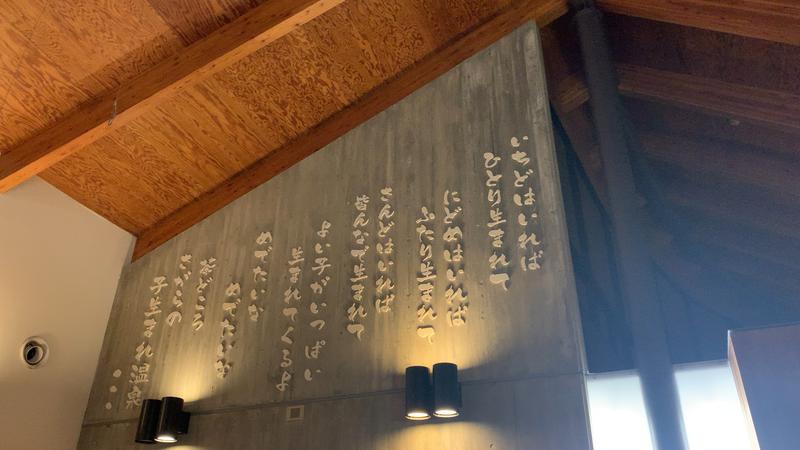 いちどはいれば
ひとり生まれて
にどめはいれば
ふたり生まれて
さんどはいれば
皆んなで生まれて
よい子がいっぱい
生まれてくるよ
めでたいな
めでたいな
茶どころ
さがらの
子生まれ温泉